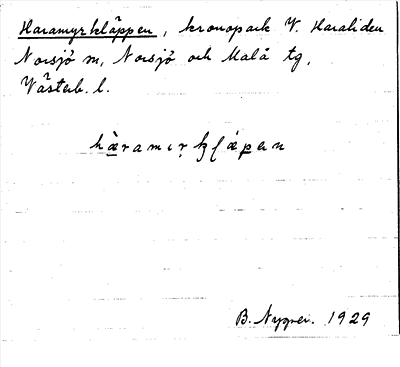 Haramyrkläppen, kronopark V. Haraliden
Norsjö sn, Norsjö och Malå tg,
Västerb. l.
hàramırk̡ʃápen
B. Nygren. 1929